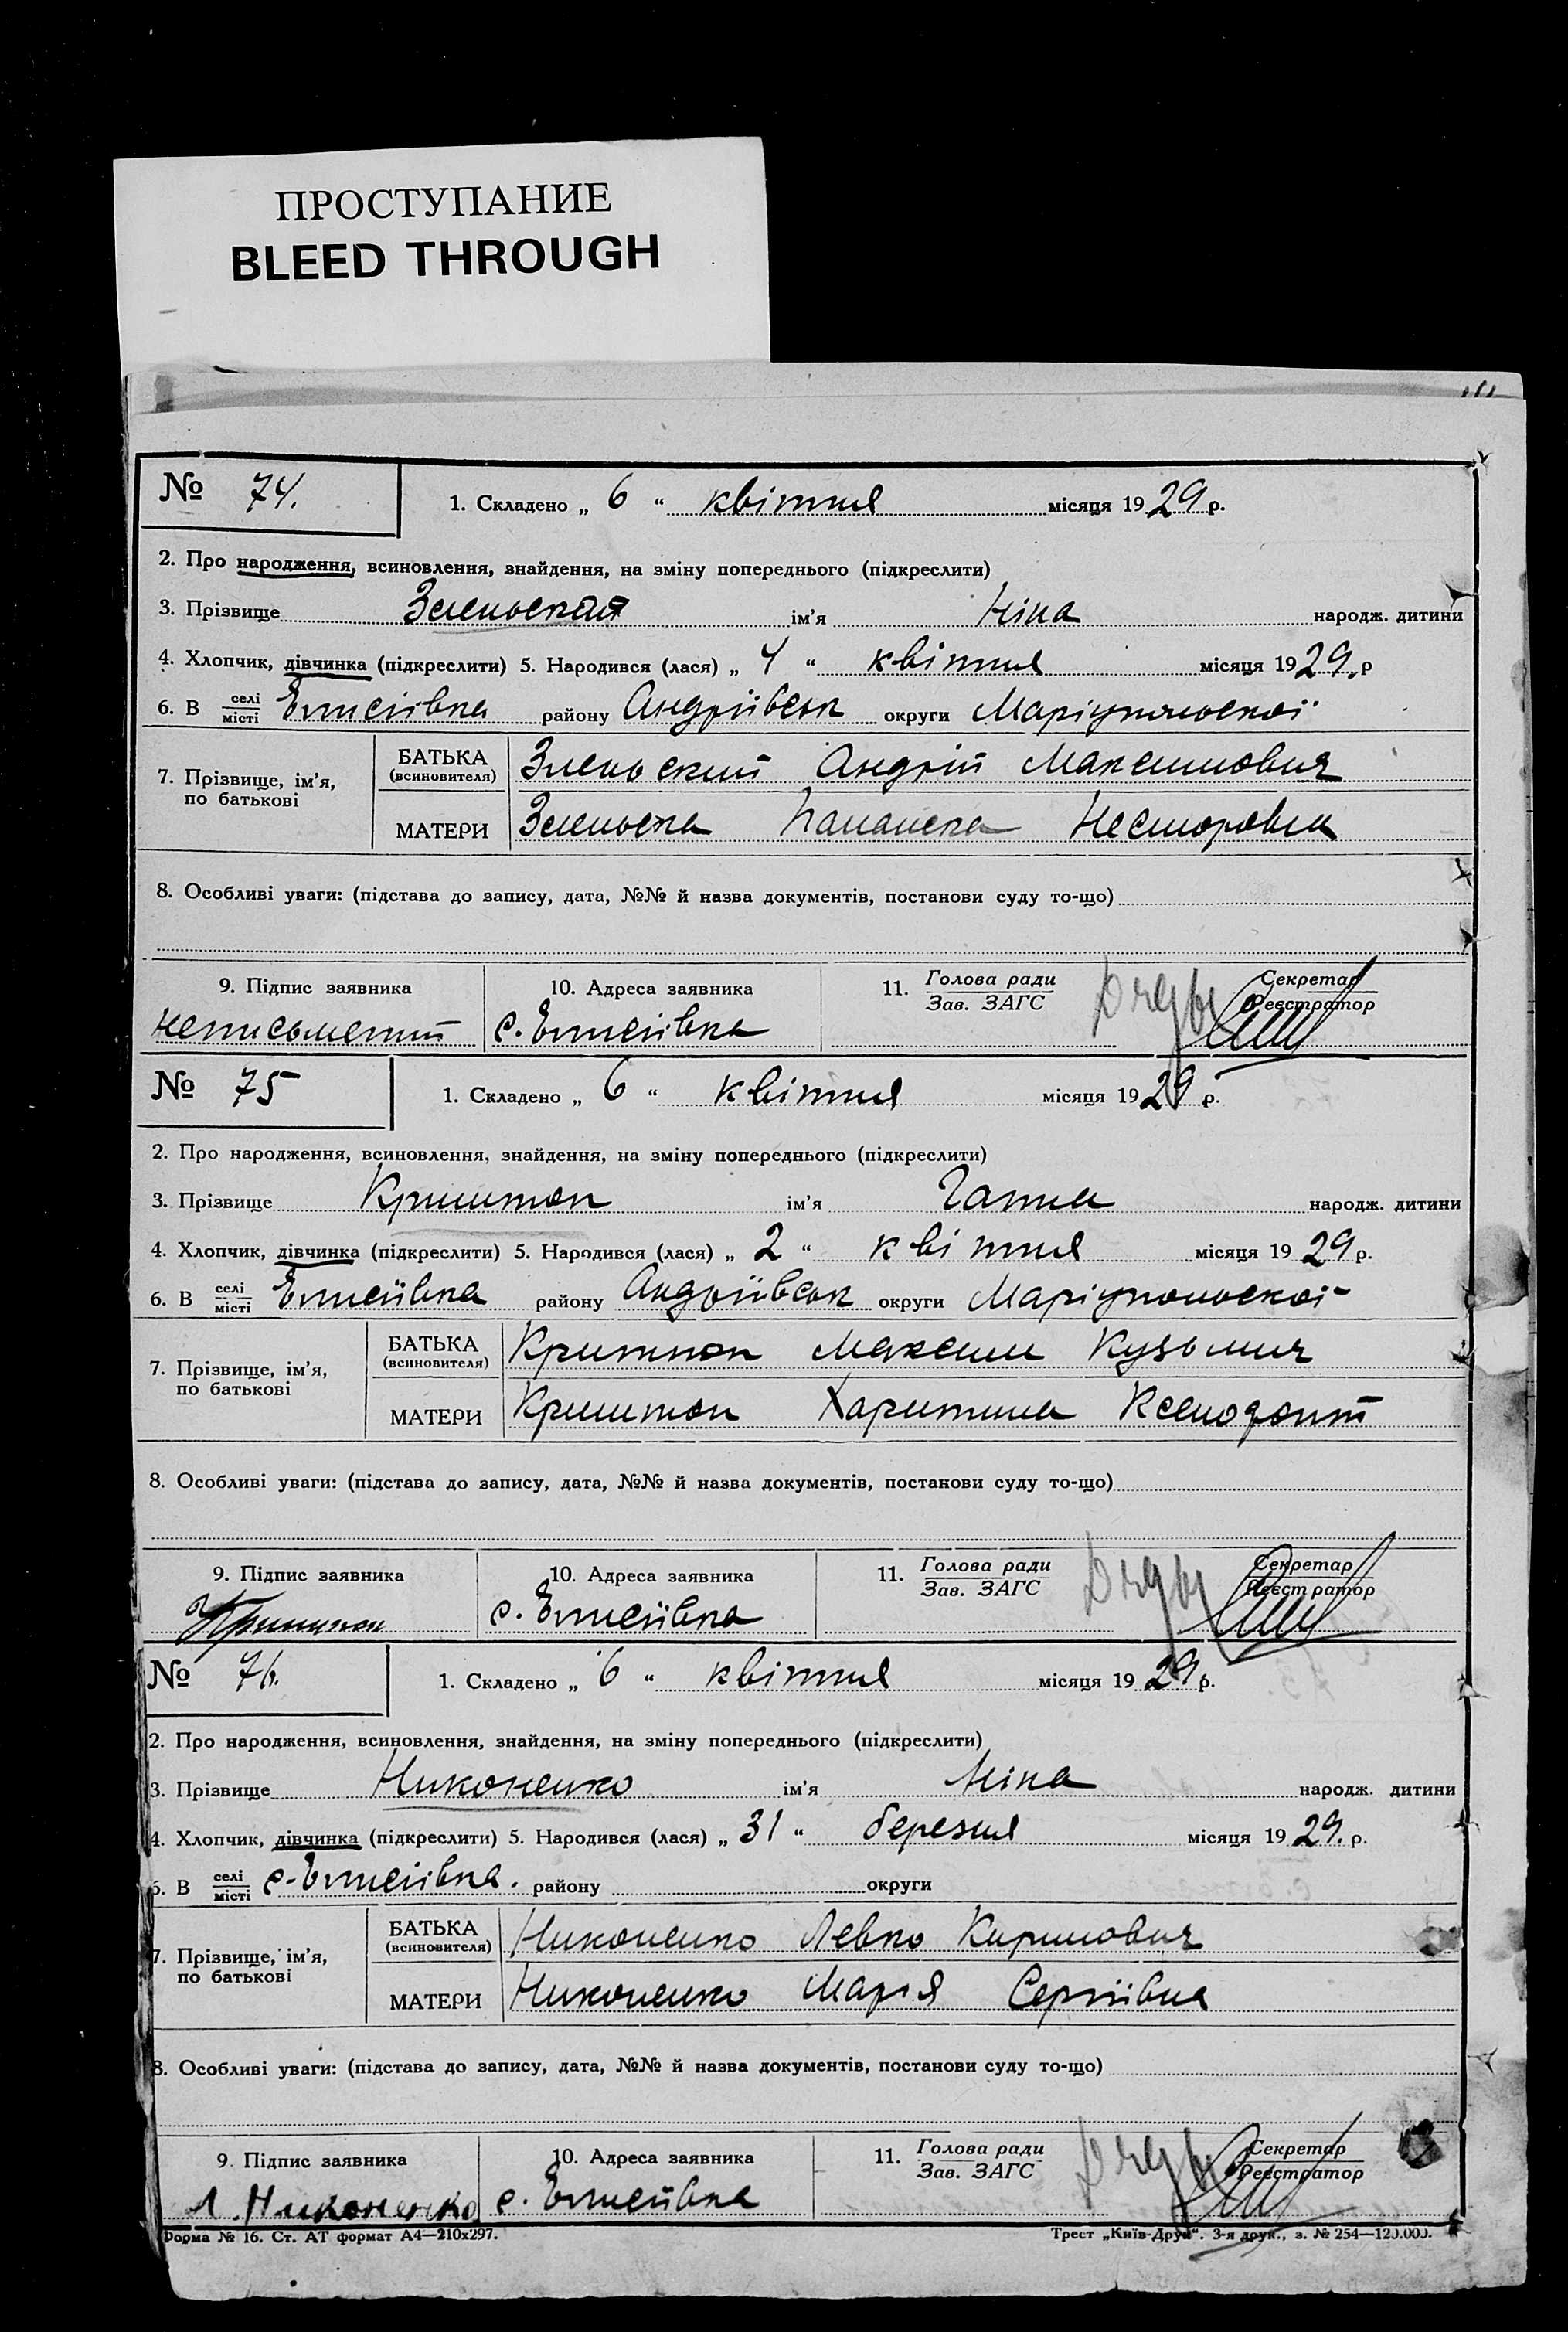 ПРОСТУПАНИЕ
BLEED THROUGH
№ 74. 1. Складено „ 6 “ квітня місяця 1929 р.
2. Про народження, всиновлення, знайдення, на зміну попереднього (підкреслити)
3. Прізвище ім’я Ніна народж. дитини
4. Хлопчик, дівчинка (підкреслити) 5. Народився (лася) „ 4 “ квітня місяця 1929. р
6. В селі/місті Елисіївка району Андріївськ округи Маріупольської
7. Прізвище, ім’я, по батькові
БАТЬКА (всиновителя) Зеленський Андрій Максимович
МАТЕРИ Зеленська Несторовна
8. Особливі уваги: (підстава до запису, дата, №№ й назва документів, постанови суду то-що)
9. Підпис заявника 10. Адреса заявника 11. Голова ради/Зав. ЗАГС Секретар/Реєстратор
неписьменний с. Елисіївка
№ 75 1. Складено „ 6 “ квітня місяця 1929 р.
2. Про народження, всиновлення, знайдення, на зміну попереднього (підкреслити)
3. Прізвище Криштоп ім’я Галина народж. дитини
4. Хлопчик, дівчинка (підкреслити) 5. Народився (лася) „ 2 “ квітня місяця 1929 р.
6. В селі/місті Елисіївка району Андріївськ округи Маріупольської
7. Прізвище, ім’я, по батькові
БАТЬКА (всиновителя) Криштоп Максим Кузьмич
МАТЕРИ Криштоп Харитина Ксенофонт
8. Особливі уваги: (підстава до запису, дата, №№ й назва документів, постанови суду то-що)
9. Підпис заявника 10. Адреса заявника 11. Голова ради/Зав. ЗАГС Секретар/Реєстратор
Криштоп с. Елисіївка
№ 76. 1. Складено „ 6 “ квітня місяця 1929 р.
2. Про народження, всиновлення, знайдення, на зміну попереднього (підкреслити)
3. Прізвище Никоненко ім’я Ніна народж. дитини
4. Хлопчик, дівчинка (підкреслити) 5. Народився (лася) „ 31 “ березня місяця 1929. р.
6. В селі/місті с. Елисіївка. району округи
7. Прізвище, ім’я, по батькові
БАТЬКА (всиновителя) Никоненко Левко Кирилович
МАТЕРИ Никоненко Марія Сергіївна
8. Особливі уваги: (підстава до запису, дата, №№ й назва документів, постанови суду то-що)
9. Підпис заявника 10. Адреса заявника 11. Голова ради/Зав. ЗАГС Секретар/Реєстратор
Л. Никоненко с. Елисіївка
Форма № 16. Ст. АТ формат А4—210х297. Трест „Київ-Друк“. 3-я друк., з. № 254—120.000.